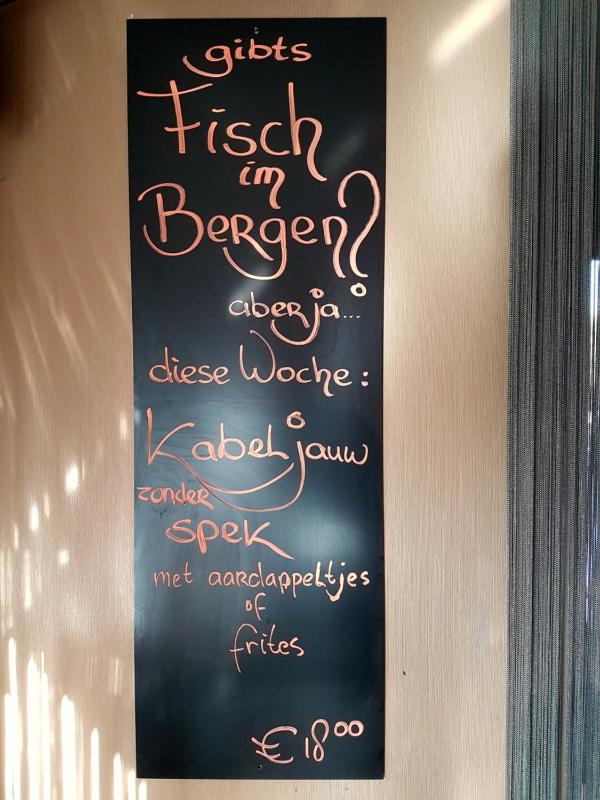 gibts
Fisch
im
Bergen?
aber ja...
diese Woche:
Kabeljauw
zonder
spek
met aardappeltjes
of
frites
€ 18⁰⁰